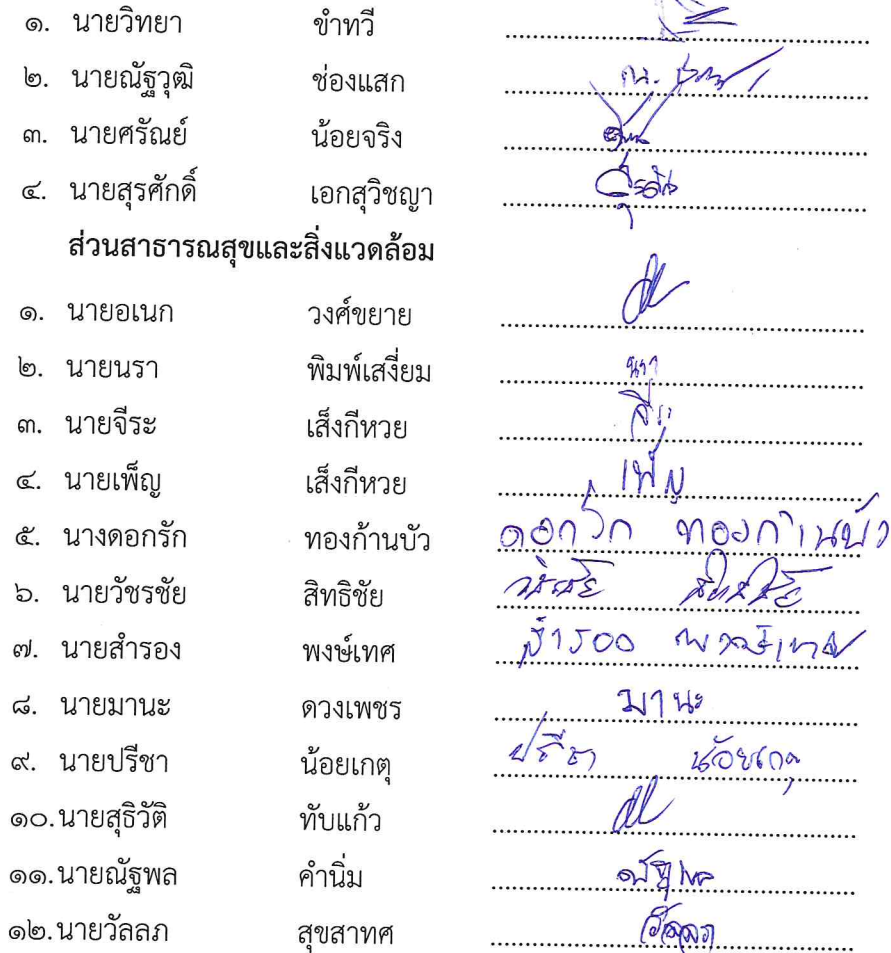 ๑. นายวิทยา ขำทวี
๒. นายณัฐวุฒิ ช่องแสก
๓. นายศรัณย์ น้อยจริง
๔. นายสุรศักดิ์ เอกสุวิชญา
ส่วนสาธารณสุขและสิ่งแวดล้อม
๑. นายอเนก วงศ์ขยาย
๒. นายนรา พิมพ์เสงี่ยม นรา
๓. นายจีระ เส็งกีหวย จีระ
๔. นายเพ็ญ เส็งกีหวย เพ็ญ
๕. นางดอกรัก ทองก้านบัว ดอกรัก ทองก้านบัว
๖. นายวัชรชัย สิทธิชัย วัชรชัย สิทธิชัย
๗. นายสำรอง พงษ์เทศ สำรอง พงษ์เทศ
๘. นายมานะ ดวงเพชร มานะ
๙. นายปรีชา น้อยเกตุ ปรีชา น้อยเกตุ
๑๐.นายสุธิวัติ ทับแก้ว
๑๑.นายณัฐพล คำนิ่ม ณัฐพล
๑๒.นายวัลลภ สุขสาทศ วัลลภ